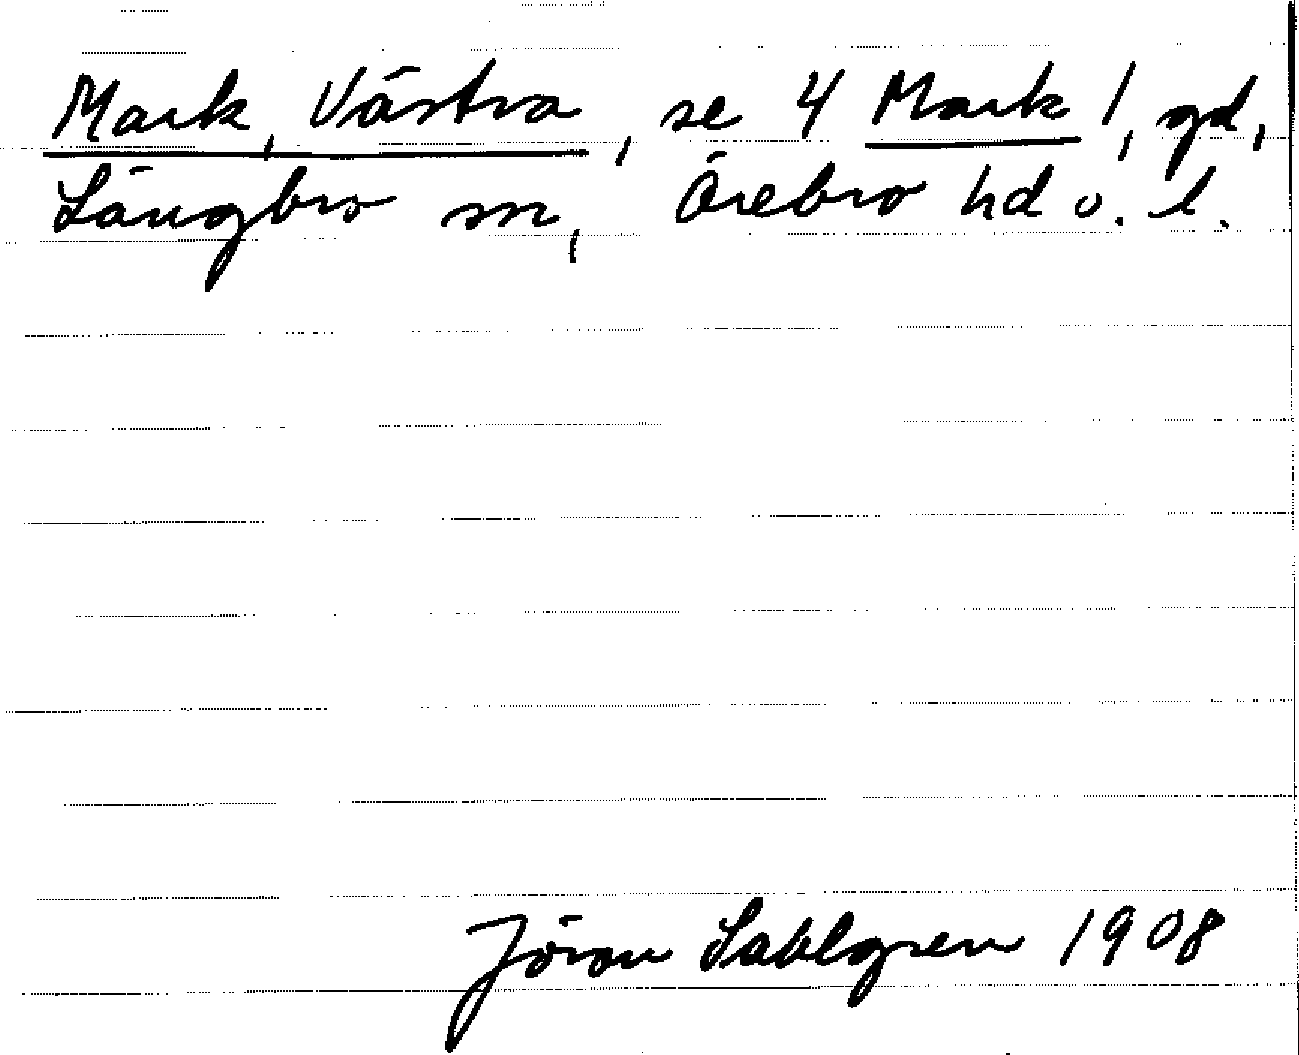 Mark, Västra, se 4 Mark 1, gd,
Längbro sn, Örebro hd o. l.
Jöran Sahlgren 1908